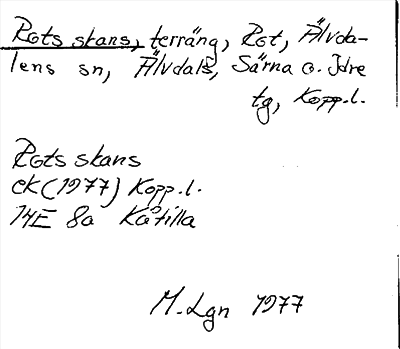 Rots skans, terräng, Rot, Älvda-
lens sn, Älvdals, Särna o. Idre
tg, Kopp.l.
Rots skans
EK (1977) Kopp.l.
14E 8a Kåtilla
M. Lgn 1977